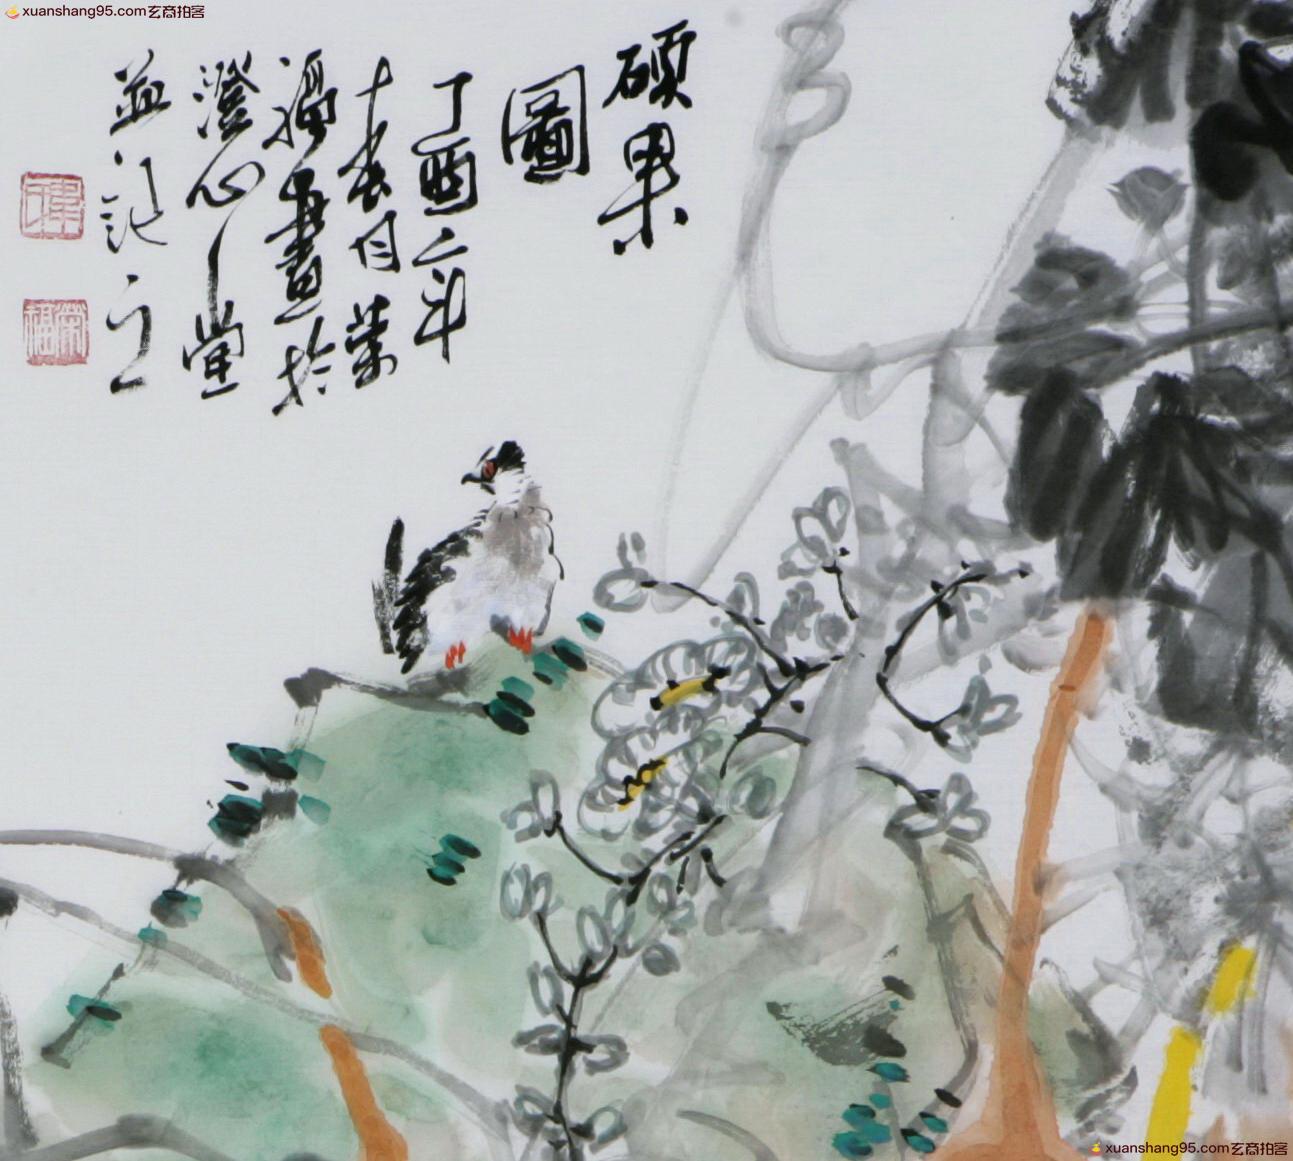 xuanshang95.com玄商拍客
硕果
圖
丁酉之年
春月 榮
福畫於
澄心堂
並記之
xuanshang95.com玄商拍客